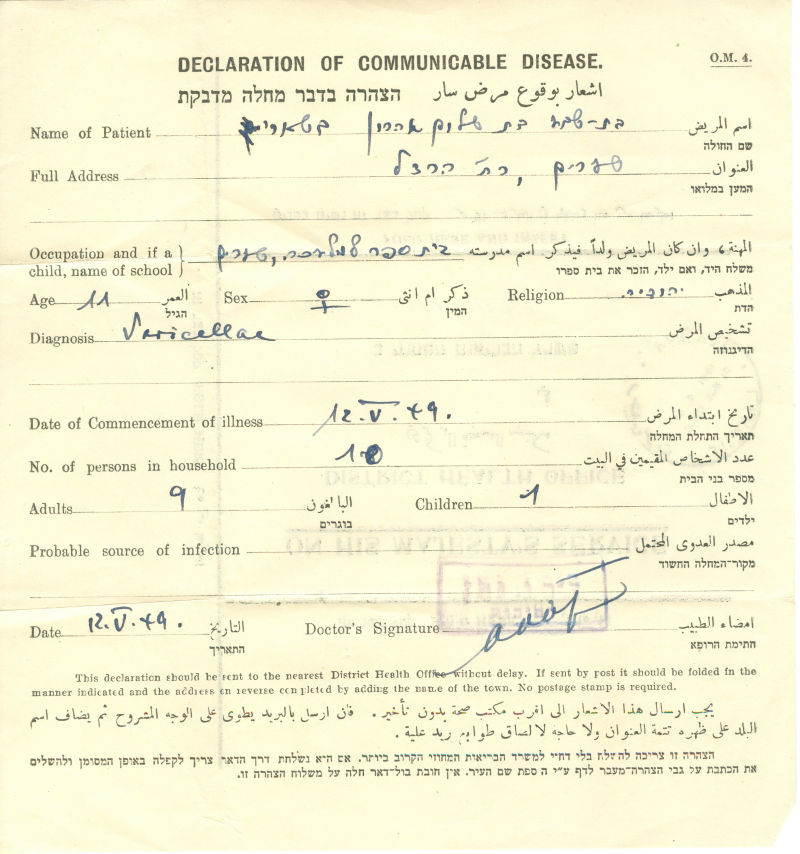 DECLARATION OF COMMUNICABLE DISEASE. O.M. 4.
הצהרה בדבר מחלה מדבקת اشعار بوقوع مرض سار
Name of Patient בת-שבע בת שלום אהרון اسم المريض
שם החולה
Full Address שערים, רח' הרצל العنوان
המען במלואו
Occupation and if a child, name of school } בית ספר למלאכה, שערים المهنة، وان كان المريض ولداً فيذكر اسم مدرسته
משלח היד, ואם ילד, הזכר את בית ספרו
Age 11 العمر Sex ♀ ذكر ام انثى Religion יהודיה المذهب
הגיל המין הדת
Diagnosis Varicellae تشخيص المرض
הדיגנוזה
Date of Commencement of illness 12.V.49. تاريخ ابتداء المرض
תאריך התחלת המחלה
No. of persons in household 10 عدد الاشخاص المقيمين في البيت
מספר בני הבית
Adults 9 البالغون Children 1 الاطفال
בוגרים ילדים
Probable source of infection مصدر العدوى المحتمل
מקור-המחלה החשוד
Date 12.V.49. التاريخ Doctor's Signature امضاء الطبيب
התאריך חתימת הרופא
This declaration should be sent to the nearest District Health Office without delay. If sent by post it should be folded in the
manner indicated and the address on reverse completed by adding the name of the town. No postage stamp is required.
يجب ارسال هذا الاشعار الى اقرب مكتب صحة بدون تأخير. فان ارسل بالبريد يطوى على الوجه المشروح ثم يضاف اسم
البلد على ظهره تتمة العنوان ولا حاجة لالصاق طوابع بريد علية.
הצהרה זו צריכה להשלח בלי דחיי למשרד הבריאות המחוזי הקרוב ביותר. אם היא נשלחת דרך הדאר צריך לקפלה באופן המסומן ולהשלים
את הכתבת על גבי הצהרה-מעבר לדף ע״י הספת שם העיר. אין חובת בול-דאר חלה על משלוח הצהרה זו.